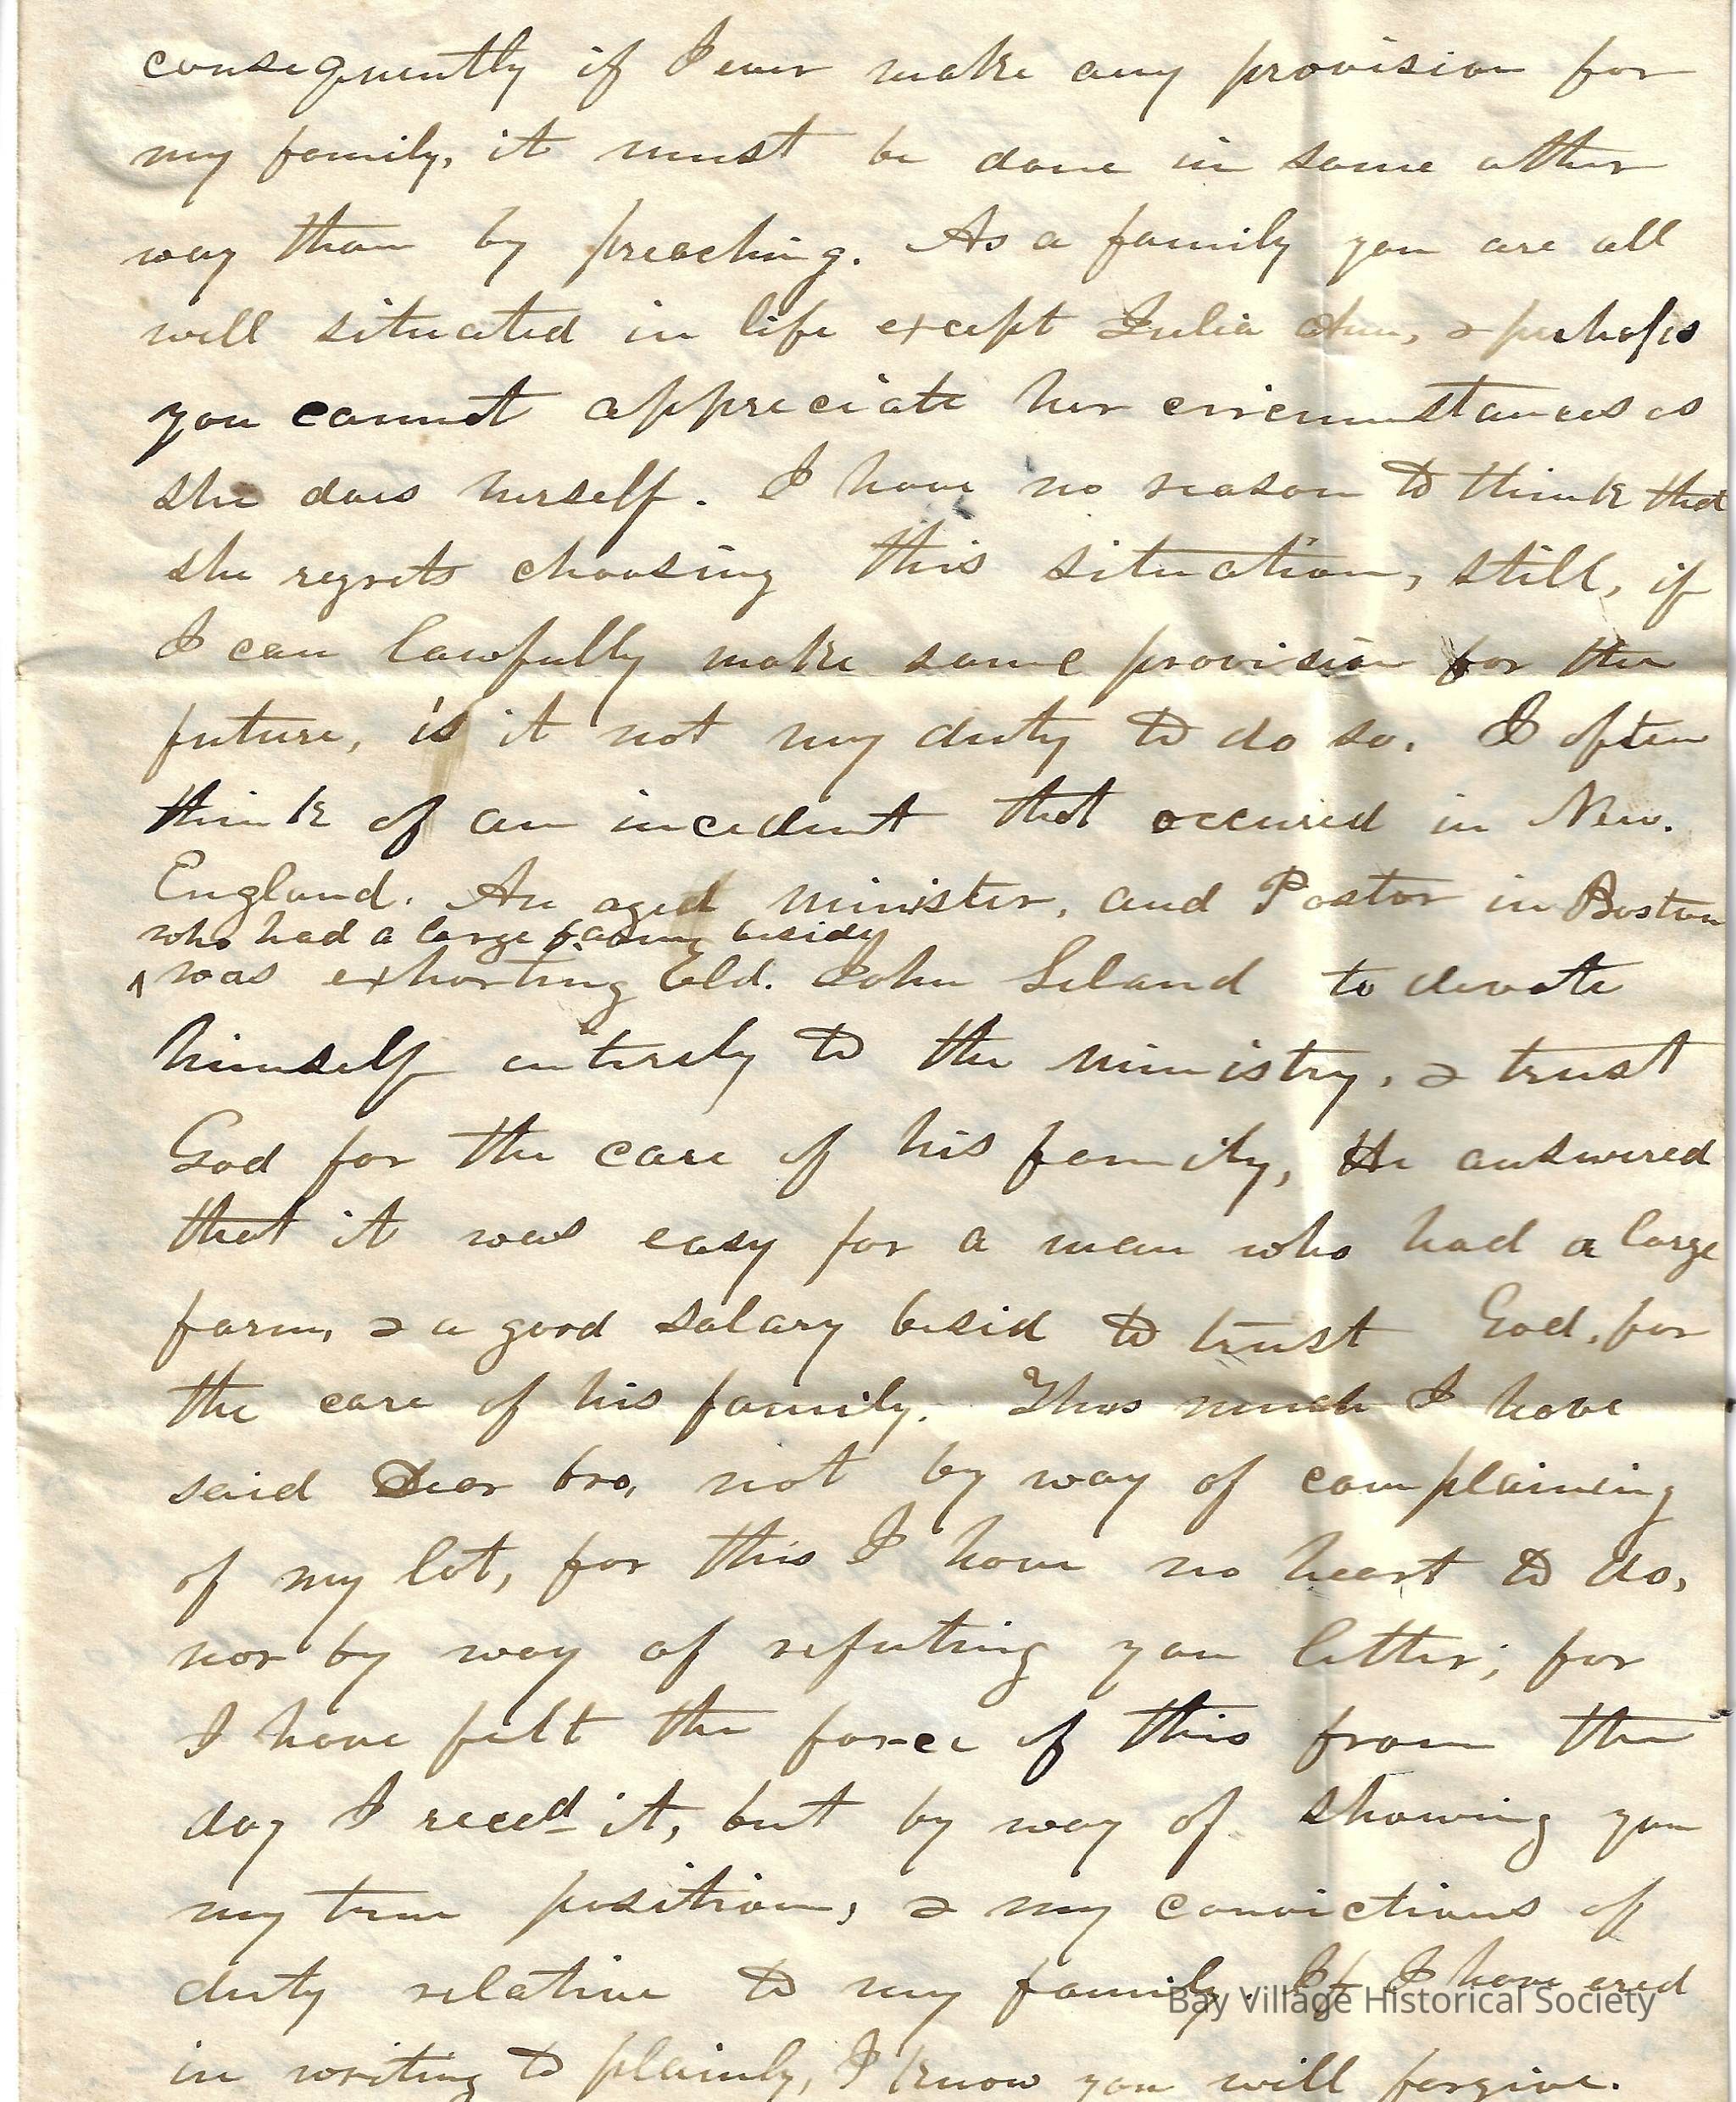 consequently if I ever make any provision for
my family, it must be done in some other
way than by preaching. As a family you are all
well situated in life except Julia Ann, & perhaps
you cannot appreciate her circumstances as
she does herself. I have no reason to think that
she regrets choosing this situation, still, if
I can lawfully make some provision for the
future, is it not my duty to do so. I often
think of an incedent that occured in New.
England. An aged minister, and Pastor in Boston
who had a large farm besids
^ was exhorting Eld. John Leland to devote
himself entirely to the ministry, & trust
God for the care of his family, He answered
that it was easy for a man who had a large
farm, & a good salary besid to trust God, for
the care of his family. Thus much I have
said Dear bro, not by way of complaining
of my lot, for this I have no heart to do,
nor by way of refuting you letter; for
I have felt the force of this from the
day I reced it, but by way of showing you
my true position, & my convictions of
duty relative to my family. If I have ered
in writing to plainly, I know you will forgive.
Bay Village Historical Society